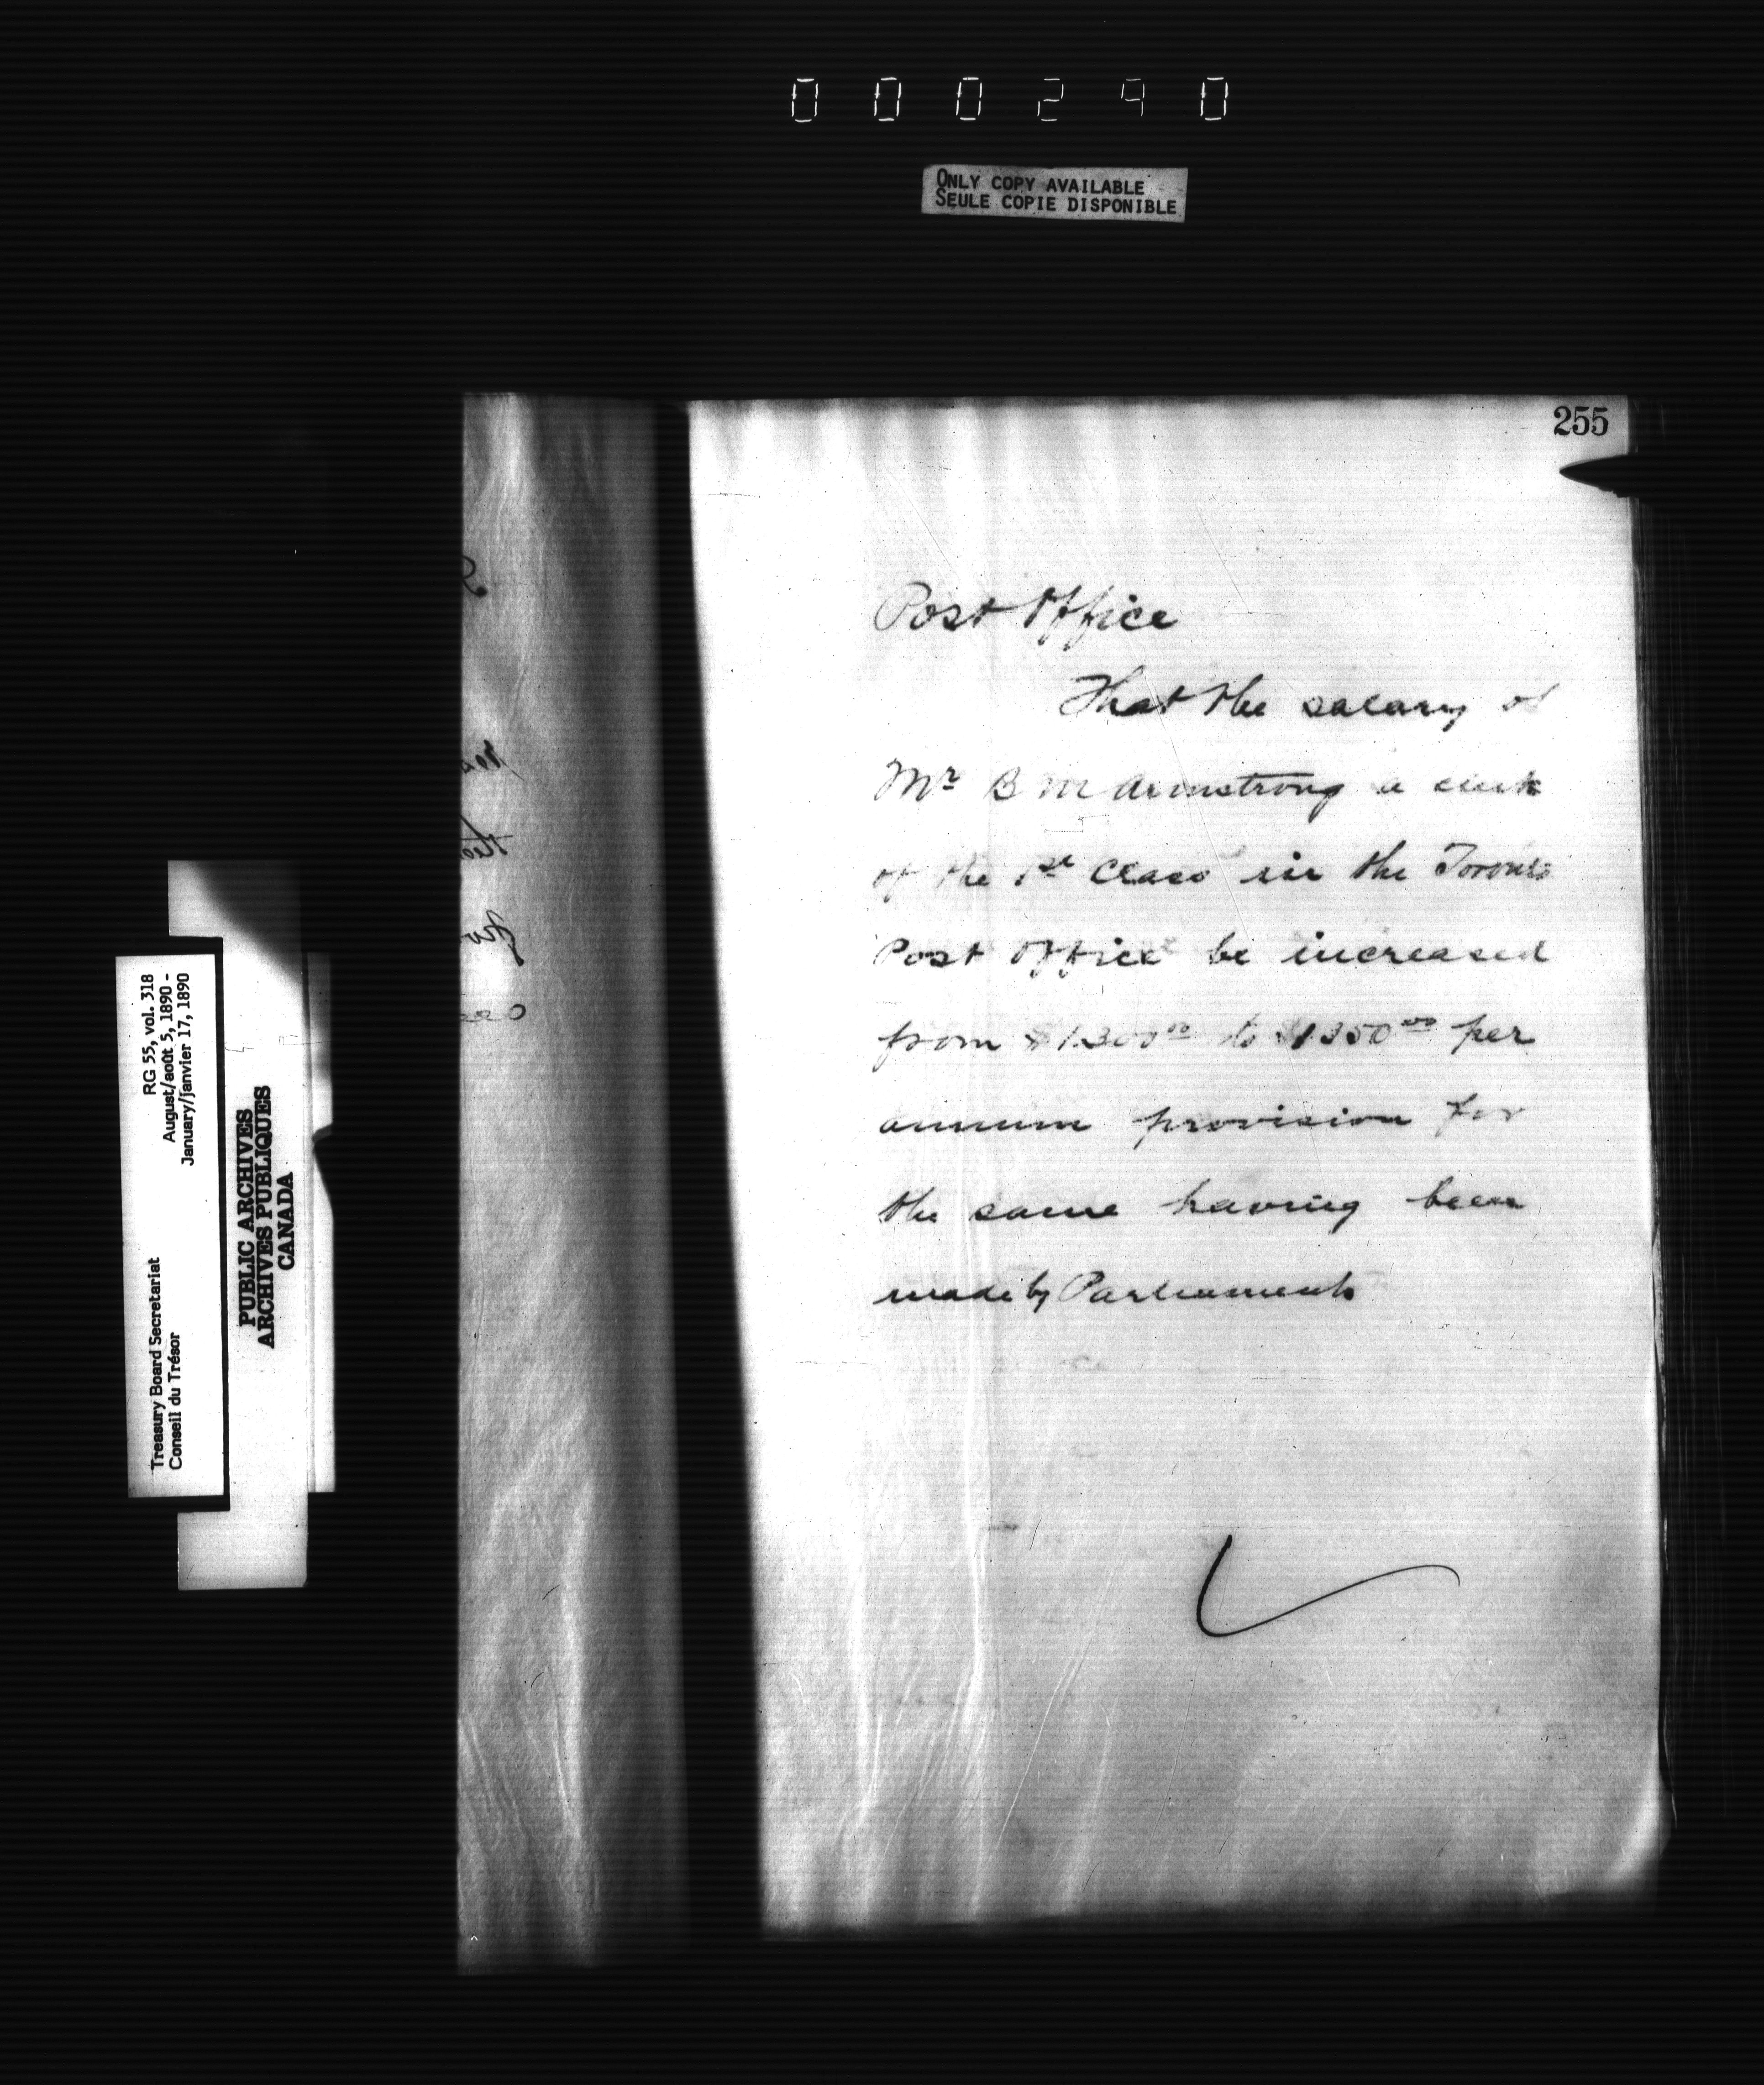 000290
ONLY COPY AVAILABLE
SEULE COPIE DISPONIBLE
255
Post Office
That the salary of
Mr B M Armstrong a clerk
of the 1st Class in the Toronto
Post Office be increased
from $1300 00 to $1350 00 per
annum provision for
the same having been
made by Parliament
RG 55, vol. 318
August/août 5, 1890 -
January/janvier 17, 1890
Treasury Board Secretariat
Conseil du Trésor
PUBLIC ARCHIVES
ARCHIVES PUBLIQUES
CANADA